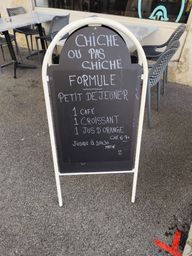 CHICHE
OU PAS
CHICHE
FORMULE
PETIT DEJEUNER
1 CAFÉ
1 CROISSANT
1 JUS D'ORANGE
JUSQU'À